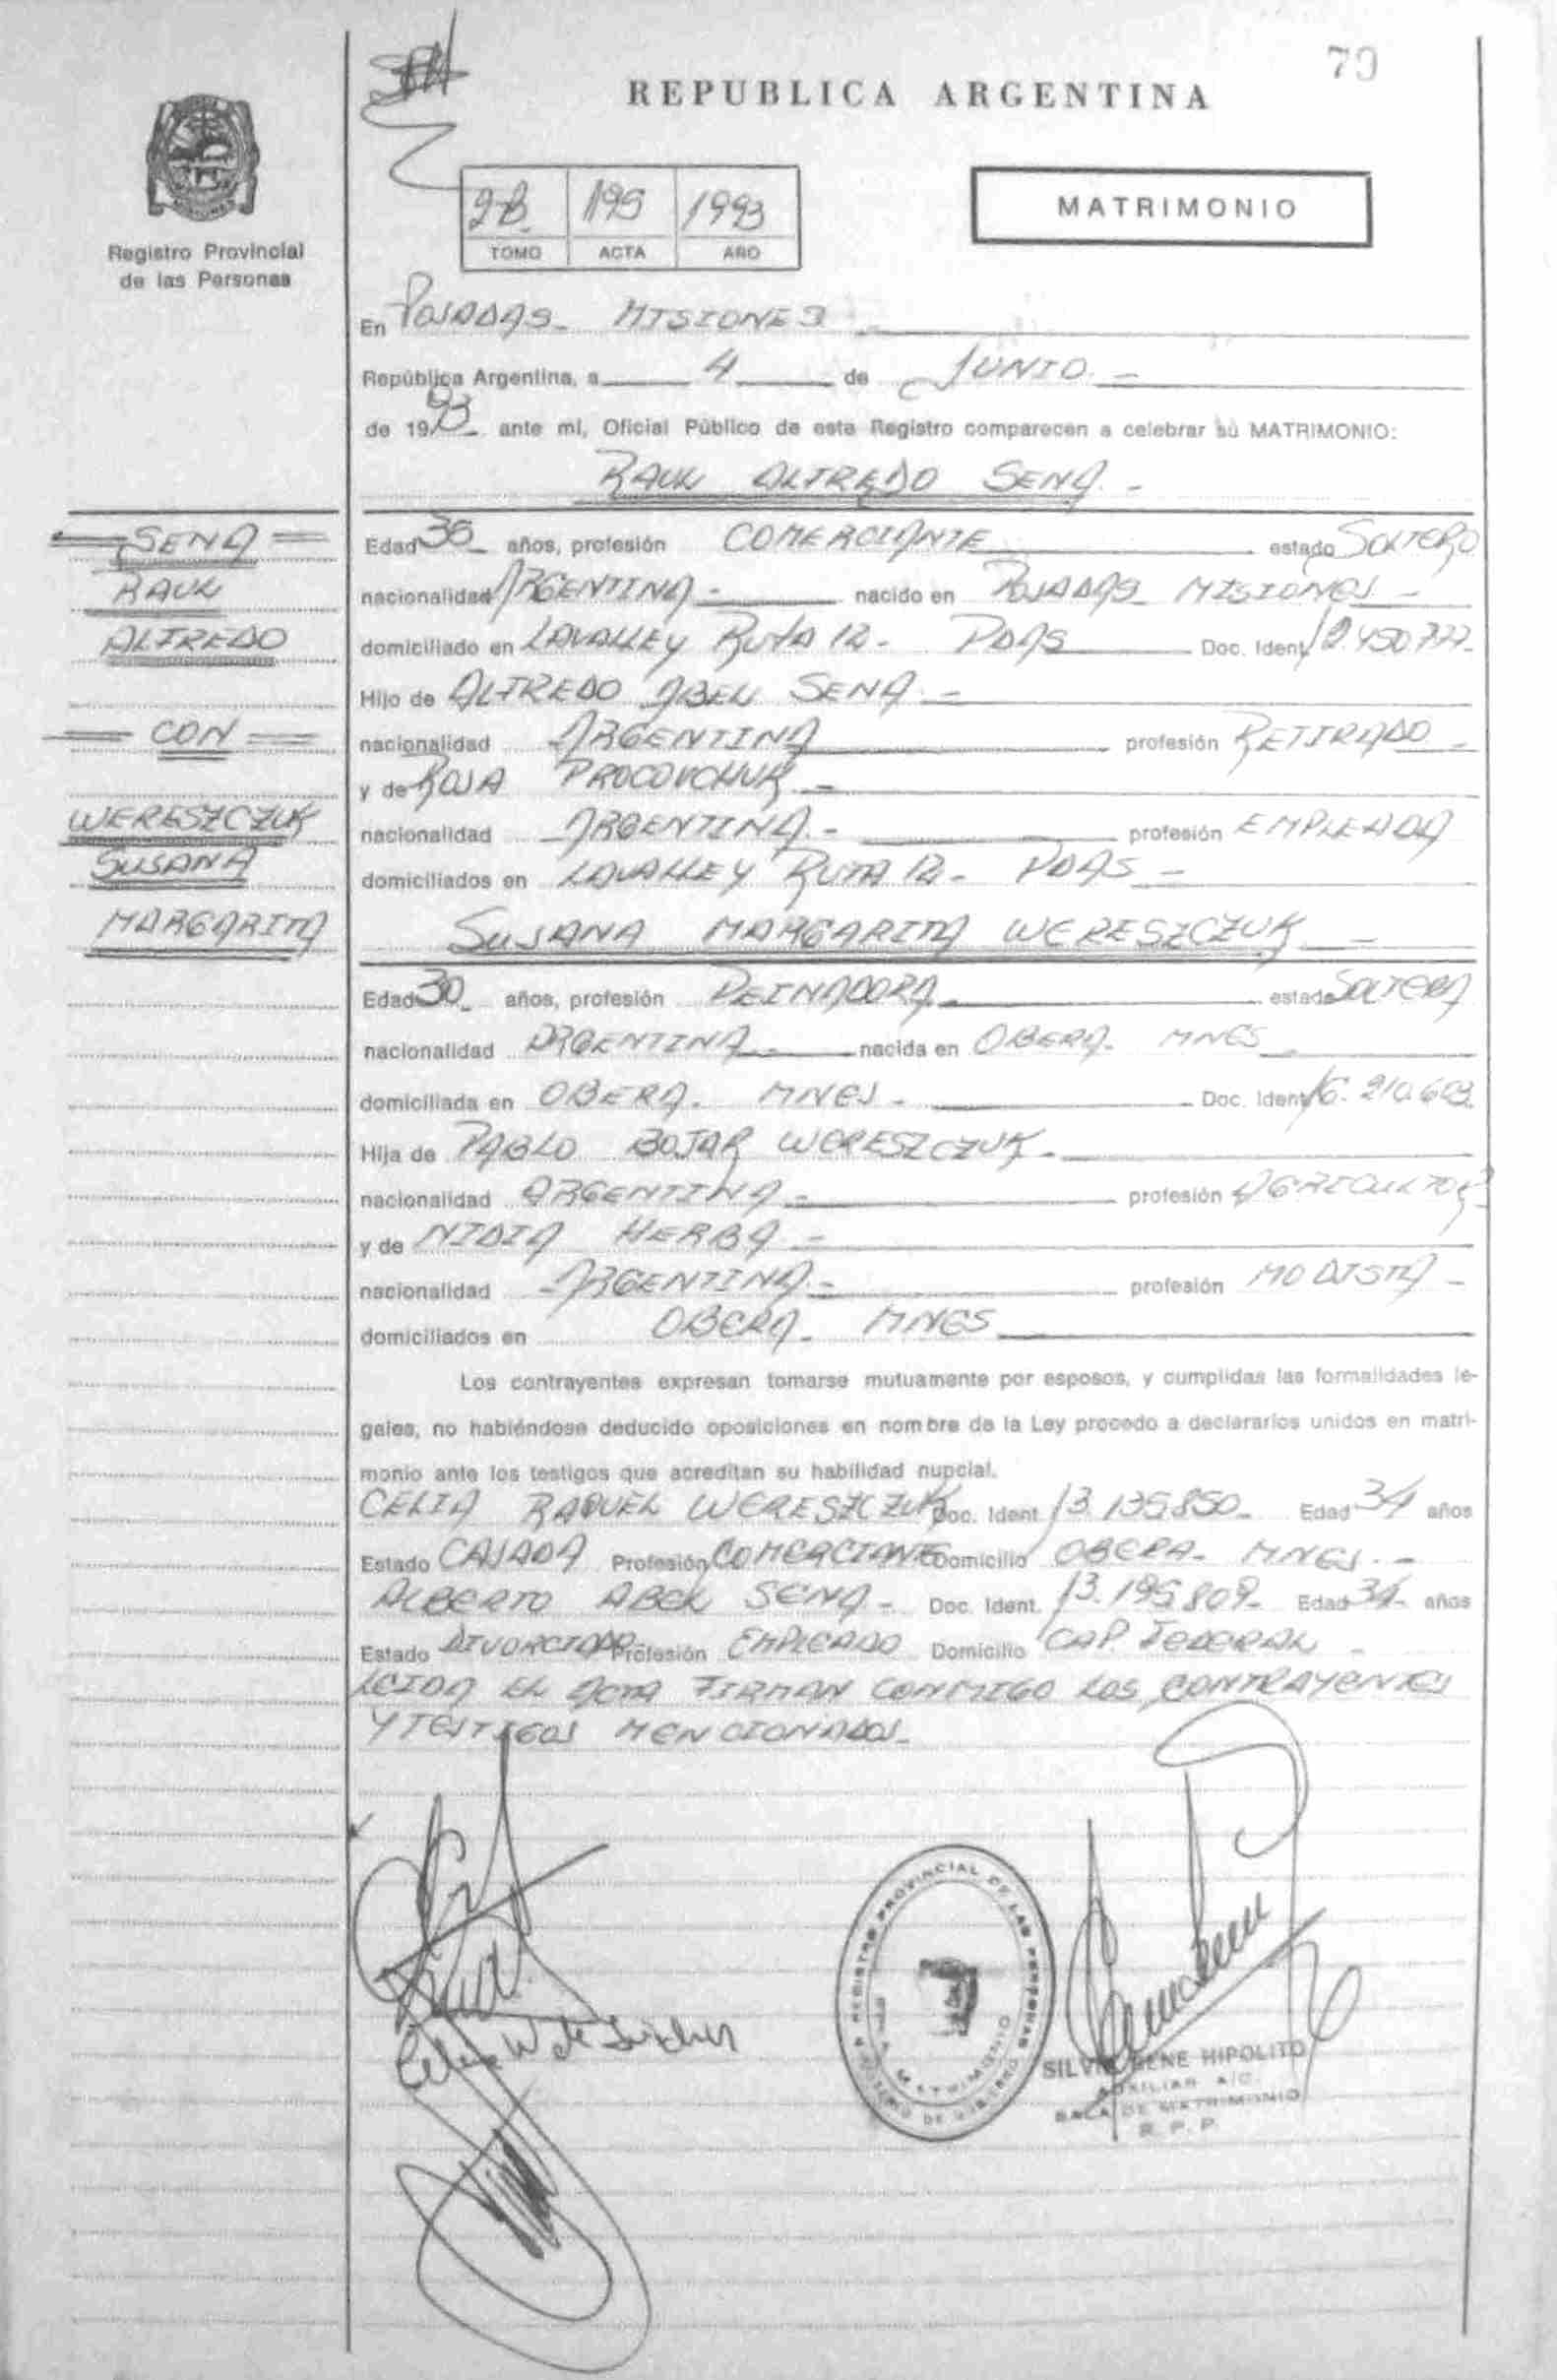 79
REPUBLICA ARGENTINA
2B 195 1993
TOMO ACTA AÑO
MATRIMONIO
Registro Provincial
de las Personas
En POSADAS - MISIONES -
República Argentina, a 4 de JUNIO -
de 1993 ante mi, Oficial Público de este Registro comparecen a celebrar su MATRIMONIO:
RAUL ALFREDO SENA -
SENA
RAUL
ALFREDO
CON
WERESZCZUK
SUSANA
MARGARITA
Edad 36 años, profesión COMERCIANTE estado SOLTERO
nacionalidad ARGENTINA - nacido en POSADAS MISIONES -
domiciliado en LAVALLEY RUTA 12 - PDAS Doc. Ident. 12.450.777-
Hijo de ALFREDO ABEL SENA -
nacionalidad ARGENTINA profesión RETIRADO -
y de ROSA PROCOVCHUK -
nacionalidad ARGENTINA - profesión EMPLEADA
domiciliados en LAVALLEY RUTA 12 - PDAS -
SUSANA MARGARITA WERESZCZUK -
Edad 30 años, profesión PEINADORA estado SOLTERA
nacionalidad ARGENTINA - nacida en OBERA - MNES
domiciliada en OBERA - MNES - Doc. Ident. 16.210.603
Hija de PABLO BOJAR WERESZCZUK -
nacionalidad ARGENTINA - profesión AGRICULTOR
y de NIDIA HERBA -
nacionalidad ARGENTINA - profesión MODISTA -
domiciliados en OBERA - MNES
Los contrayentes expresan tomarse mutuamente por esposos, y cumplidas las formalidades le-
gales, no habiéndose deducido oposiciones en nombre de la Ley procedo a declararlos unidos en matri-
monio ante los testigos que acreditan su habilidad nupcial.
CELIA RAQUEL WERESZCZUK Doc. Ident. 13.135.850 - Edad 34 años
Estado CASADA Profesión COMERCIANTE Domicilio OBERA - MNES. -
ALBERTO ABEL SENA - Doc. Ident. 13.195.809 - Edad 34 - años
Estado DIVORCIADO Profesión EMPLEADO Domicilio CAP. FEDERAL -
LEIDA EL ACTA FIRMAN CONMIGO LOS CONTRAYENTES
Y TESTIGOS MENCIONADOS -
REGISTRO PROVINCIAL DE LAS PERSONAS
MATRIMONIO
SILVIA IRENE HIPOLITO
AUXILIAR A/C.
SALA DE MATRIMONIO
R. P. P.